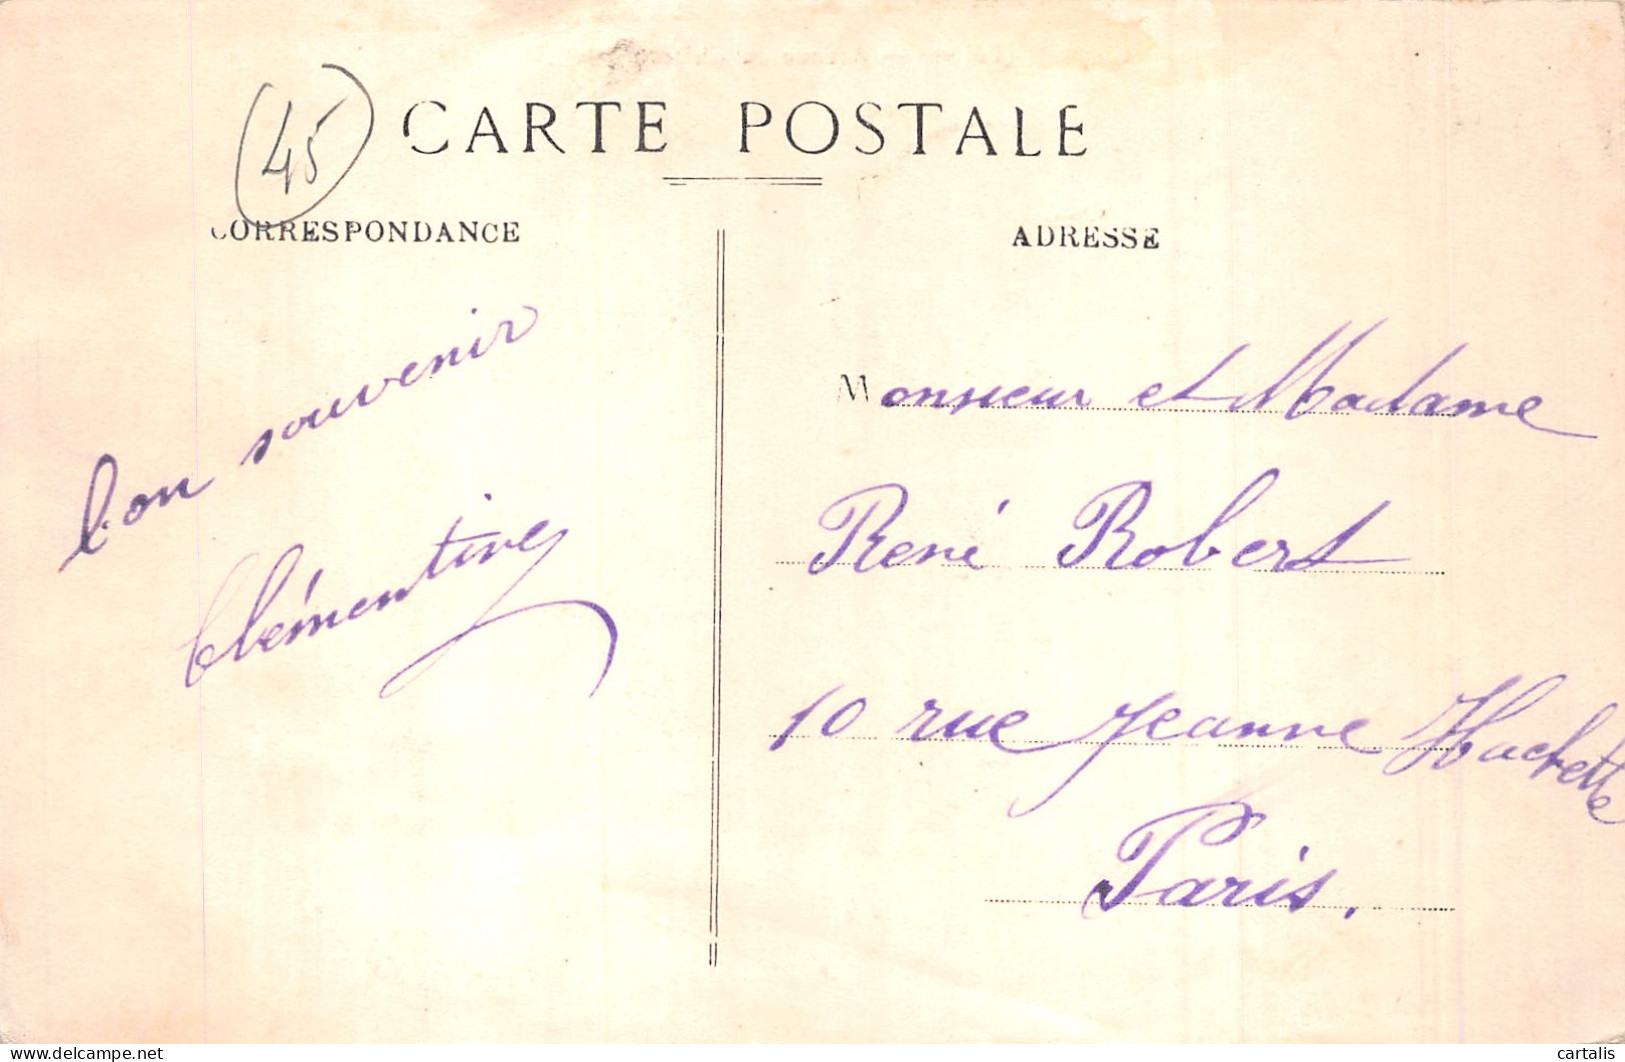 (45)
CARTE POSTALE
CORRESPONDANCE
ADRESSE
bon souvenir
Clémentine
Monsieur et Madame
René Robert
10 rue Jeanne Hachette
Paris.
cartalis
delcampe.net